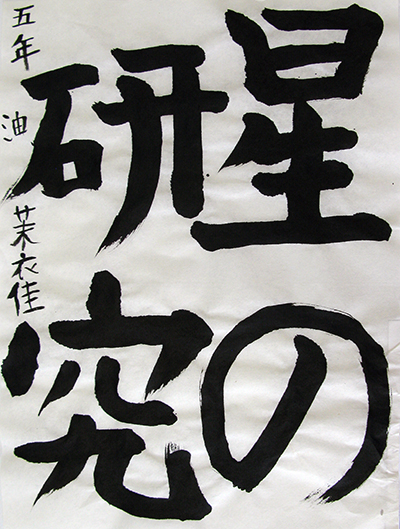 星の
研究
五年 油 茉衣佳